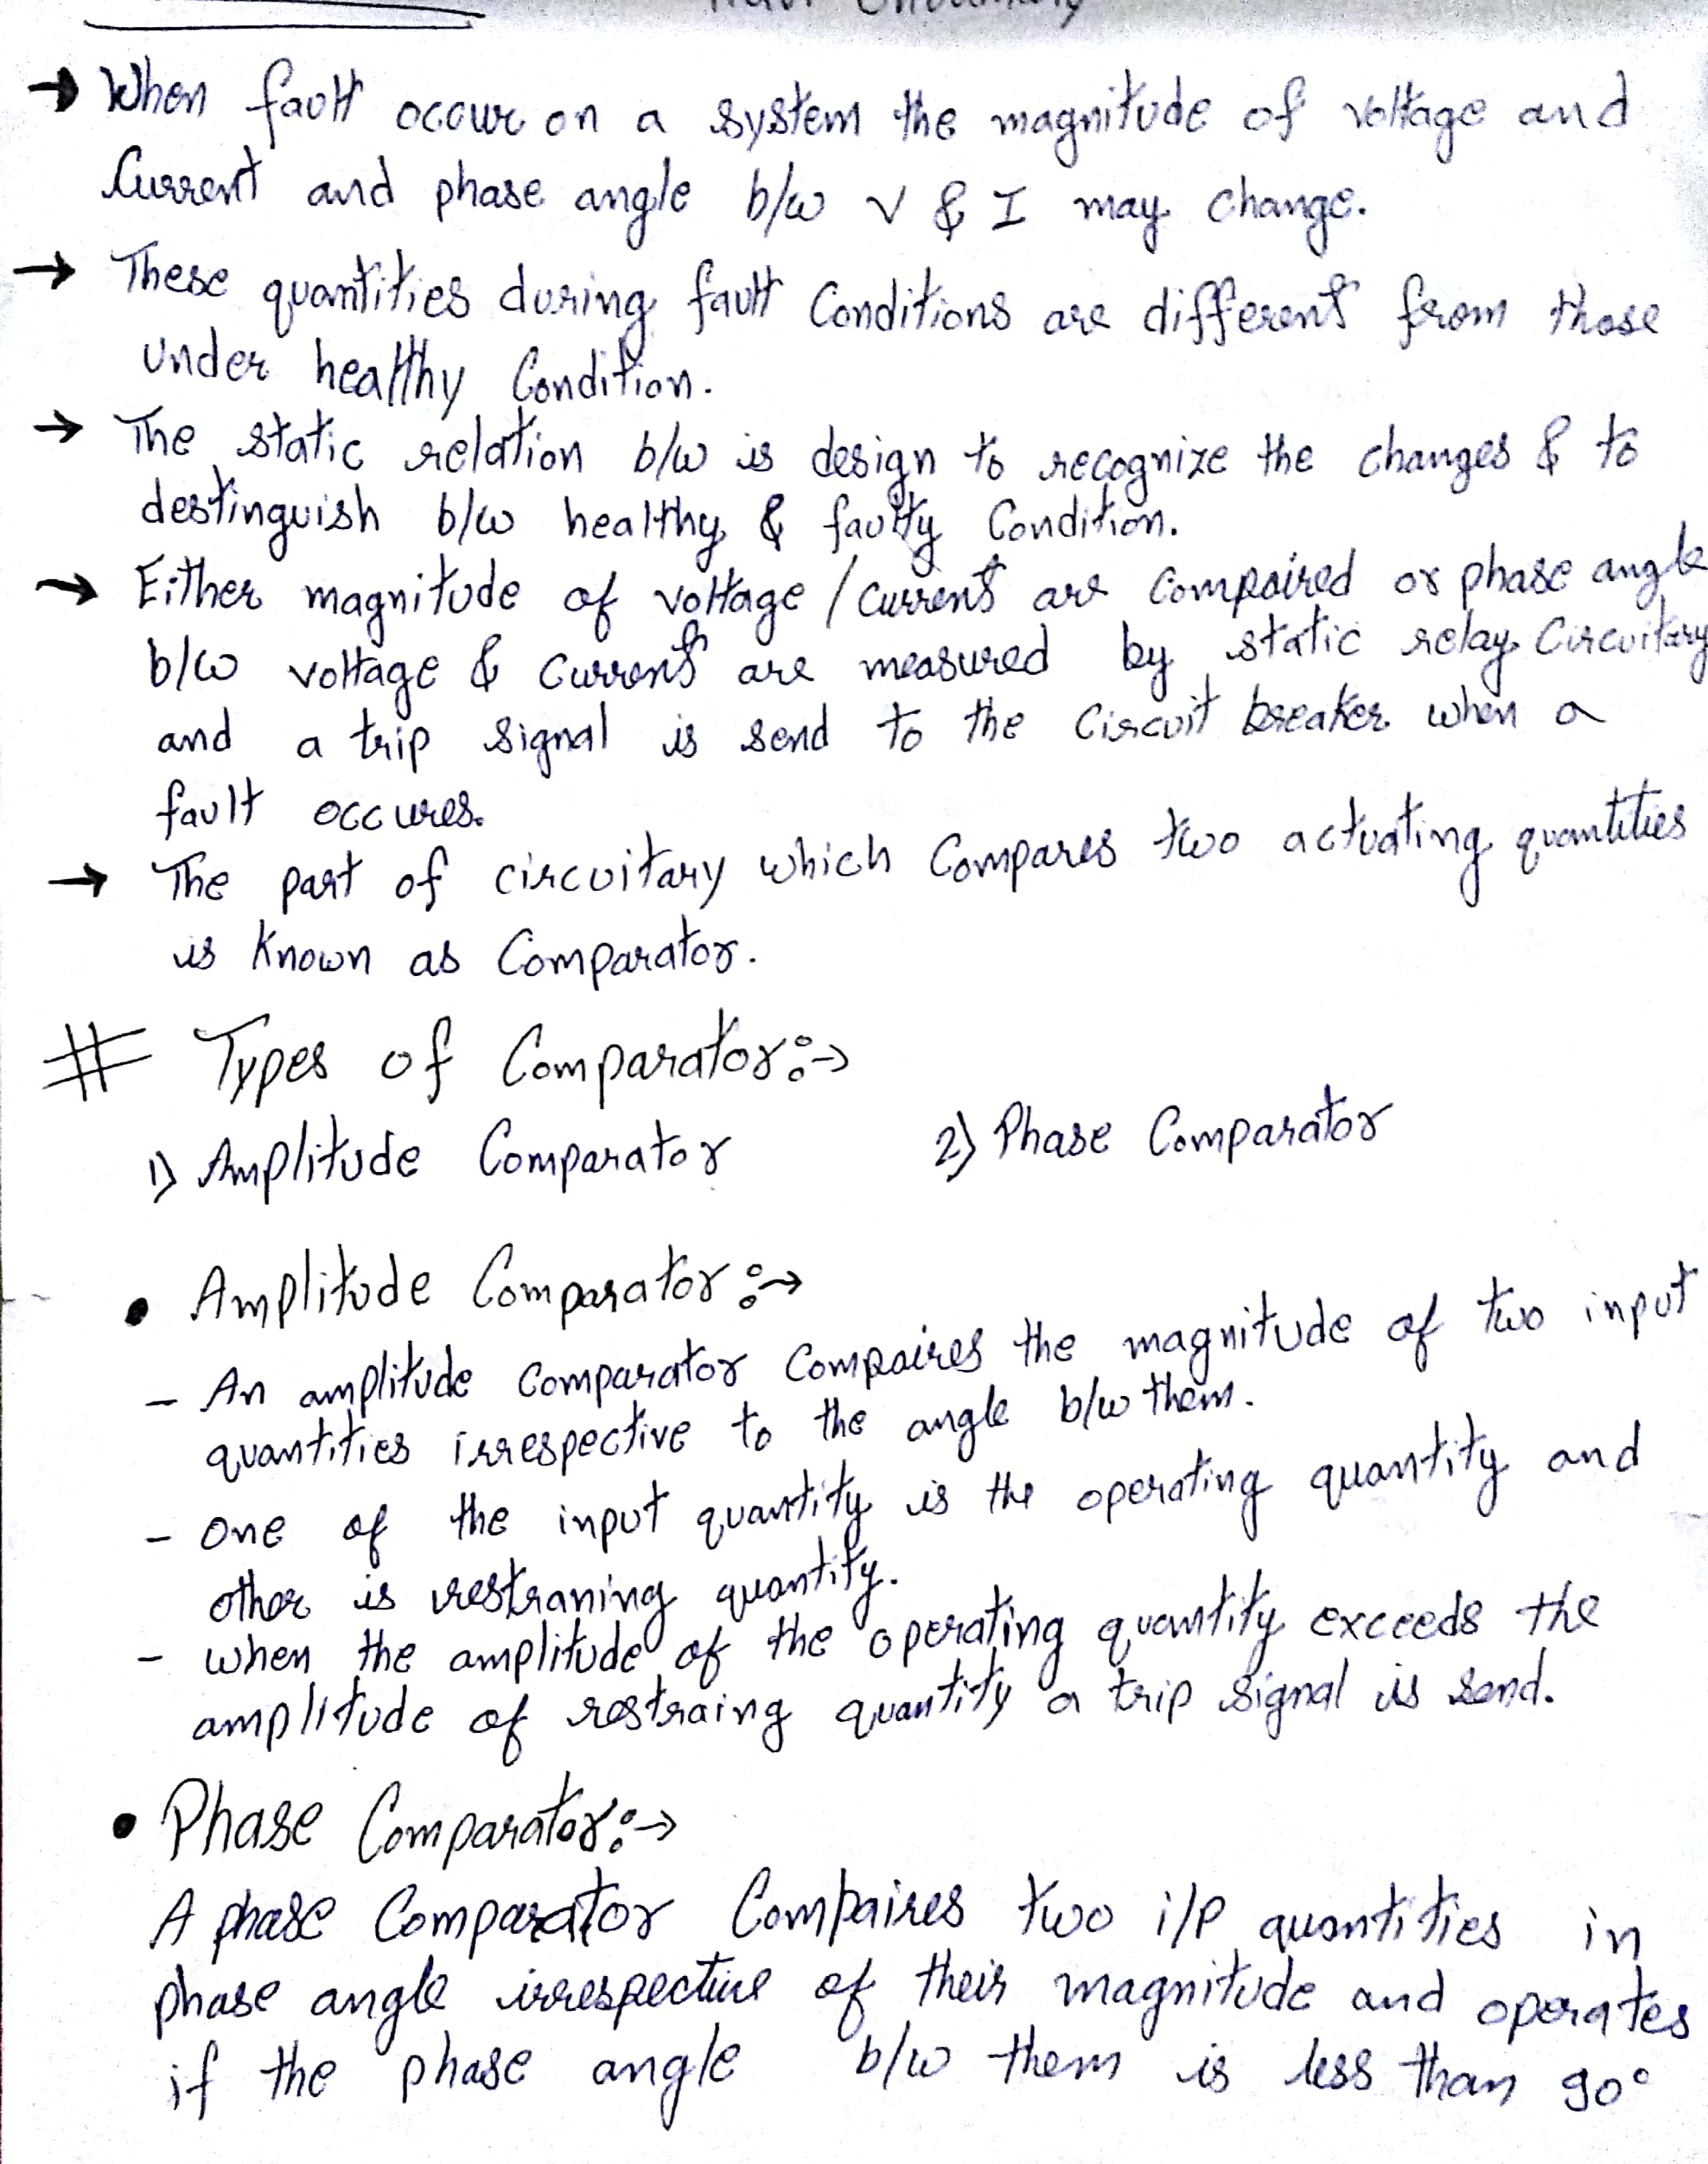 → When fault occur on a system the magnitude of voltage and
Current and phase angle b/w V & I may change.
→ These quantities during fault Conditions are different from those
under healthy Condition.
→ The static relation b/w is design to recognize the changes & to
destinguish b/w healthy & faulty Condition.
→ Either magnitude of voltage / current are Compaired or phase angle
b/w voltage & Current are measured by static relay Circuitary
and a trip signal is send to the Circuit breaker when a
fault occures.
→ The part of circuitary which Compares two actuating quantities
is Known as Comparator.
# Types of Comparator:→
1) Amplitude Comparator 2) Phase Comparator
• Amplitude Comparator:→
- An amplitude Comparator Compaires the magnitude of two input
quantities irrespective to the angle b/w them.
- One of the input quantity is the operating quantity and
other is restraning quantity.
- when the amplitude of the operating quantity exceeds the
amplitude of restraing quantity a trip signal is send.
• Phase Comparator:→
A phase Comparator Compaires two i/p quantities in
phase angle irrespective of their magnitude and operates
if the phase angle b/w them is less than 90°